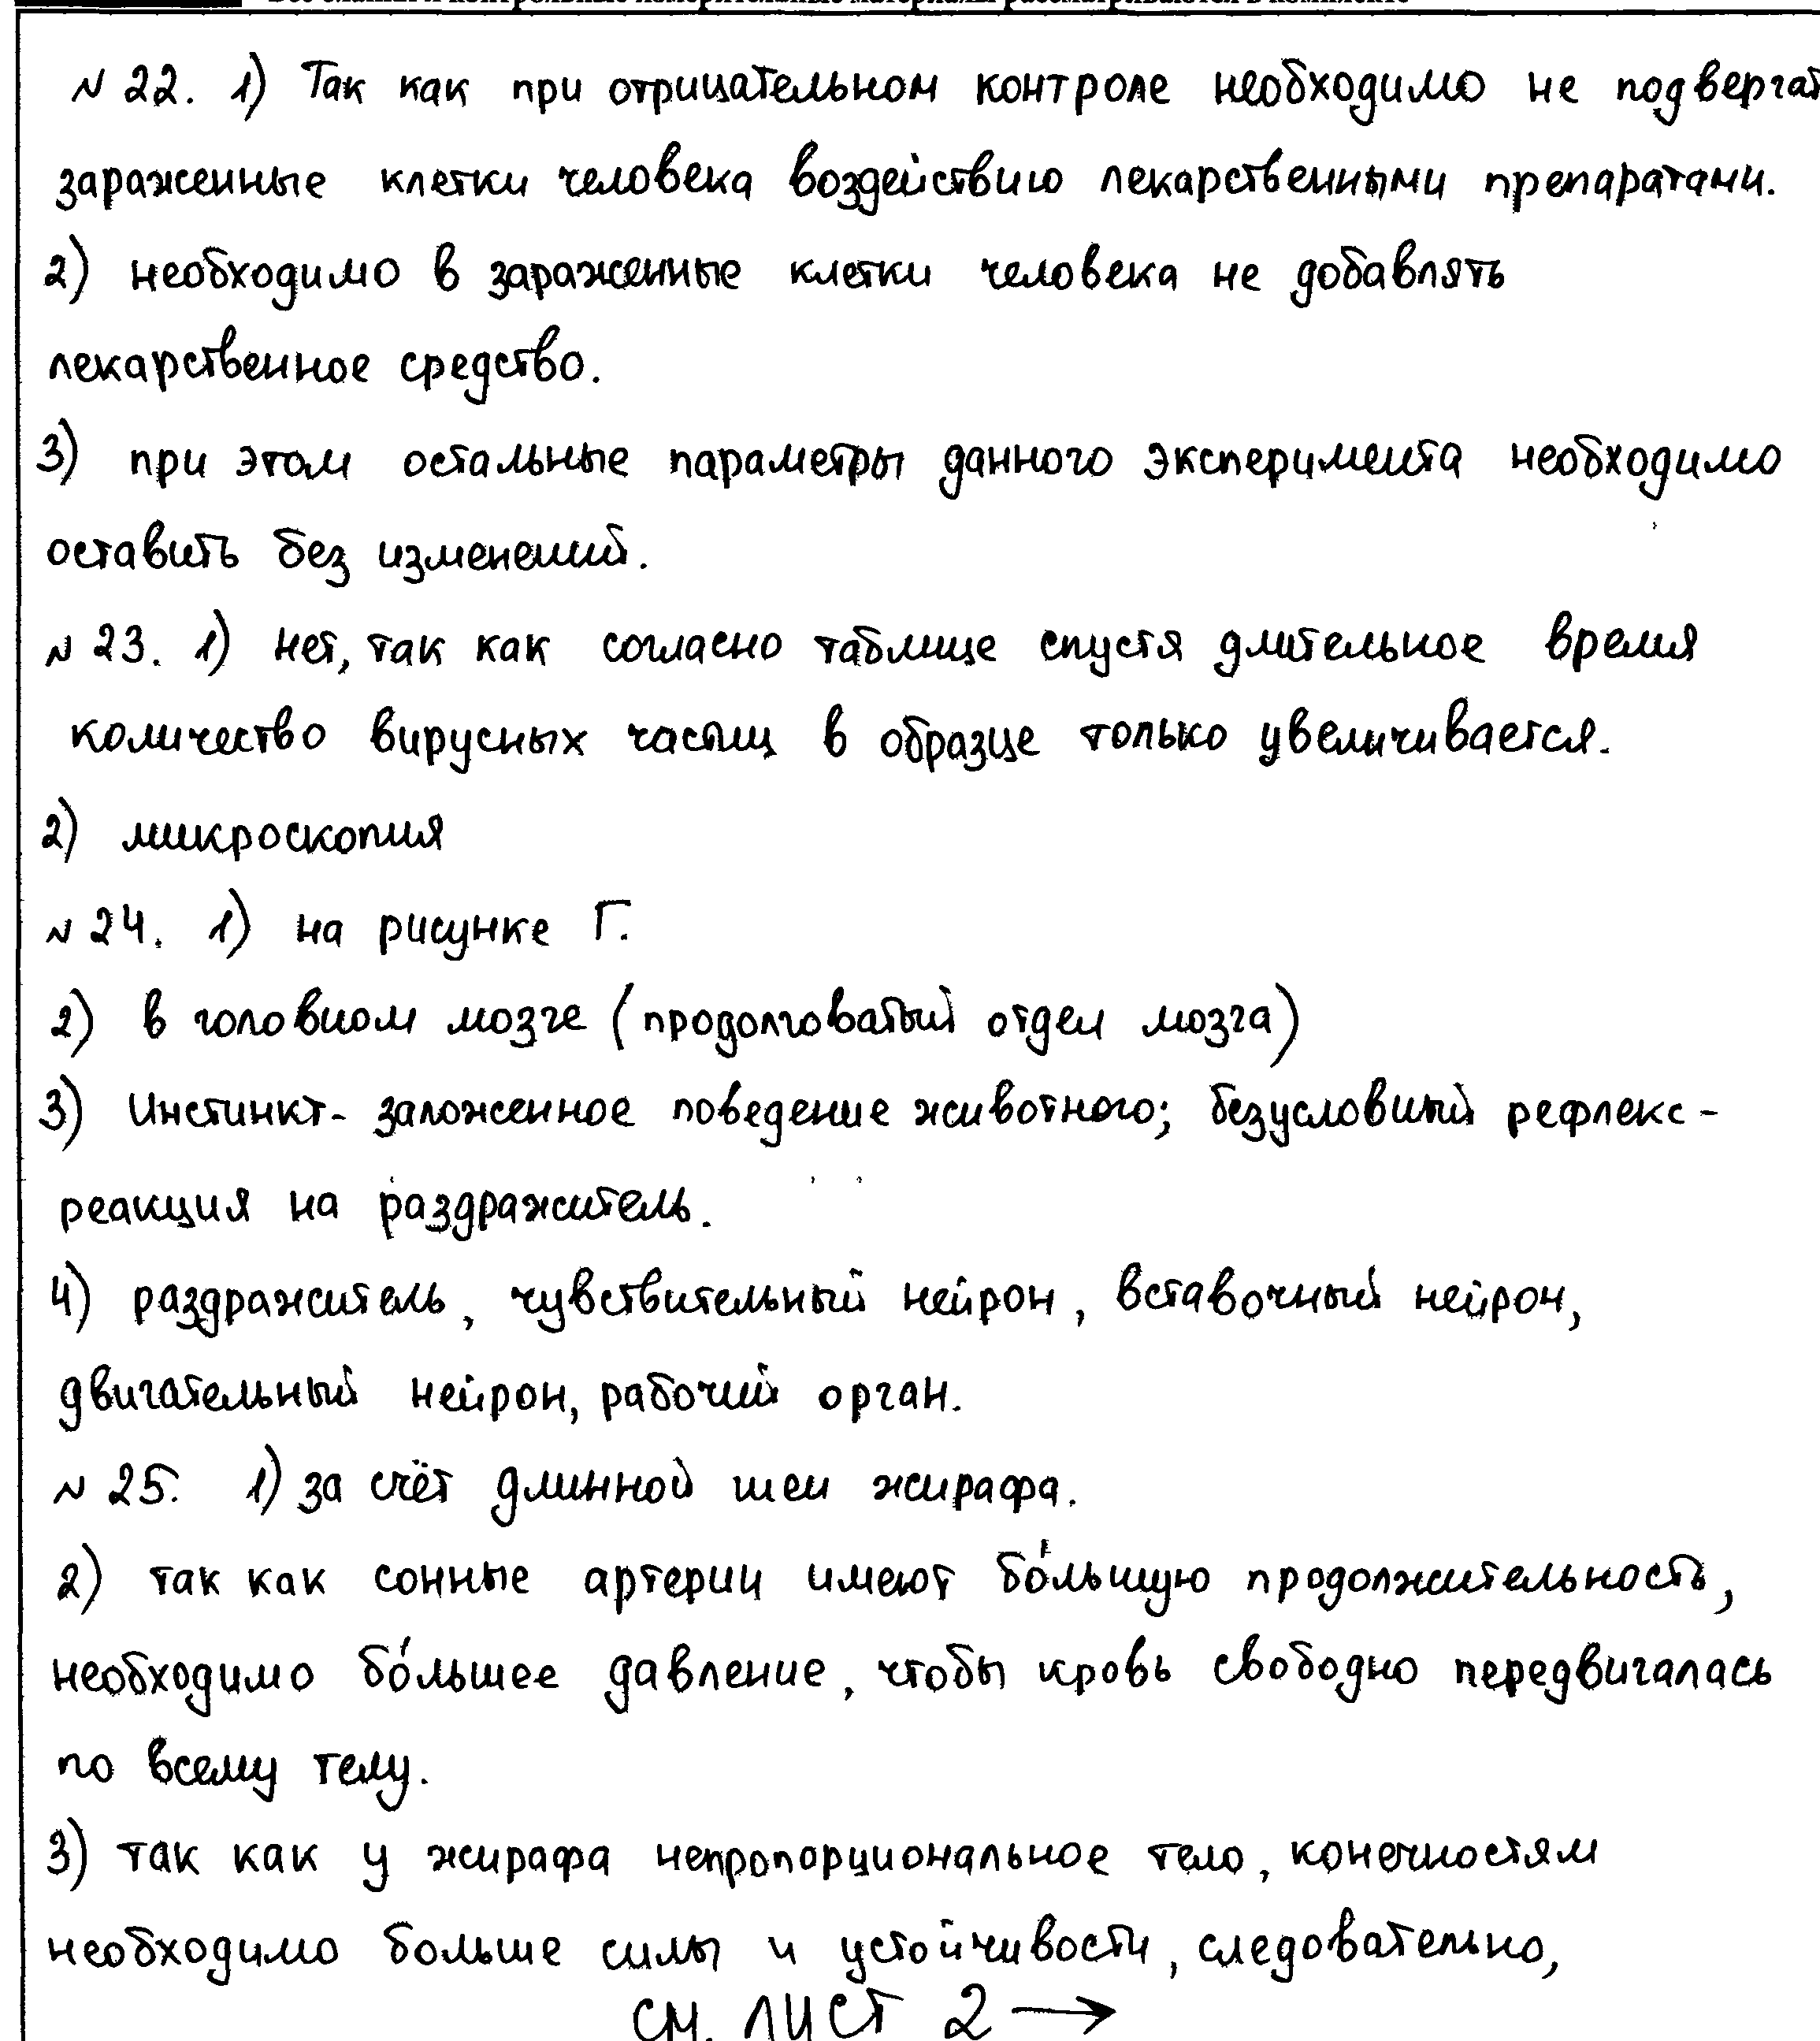 Все бланки и контрольные измерительные материалы рассматриваются в комплекте
№ 22. 1) Так как при отрицательном контроле необходимо не подвергат
зараженные клетки человека воздействию лекарственными препаратами.
2) необходимо в зараженные клетки человека не добавлять
лекарственное средство.
3) при этом остальные параметры данного эксперимента необходимо
оставить без изменений.
№ 23. 1) нет, так как согласно таблице спустя длительное время
количество вирусных частиц в образце только увеличивается.
2) микроскопия
№ 24. 1) на рисунке Г.
2) в головном мозге (продолговатый отдел мозга)
3) Инстинкт - заложенное поведение животного; безусловный рефлекс -
реакция на раздражитель.
4) раздражитель, чувствительный нейрон, вставочный нейрон,
двигательный нейрон, рабочий орган.
№ 25. 1) за счёт длинной шеи жирафа.
2) так как сонные артерии имеют бо́льшую продолжительность,
необходимо бо́льшее давление, чтобы кровь свободно передвигалась
по всему телу.
3) так как у жирафа непропорциональное тело, конечностям
необходимо больше силы и устойчивости, следовательно,
см. лист 2 →